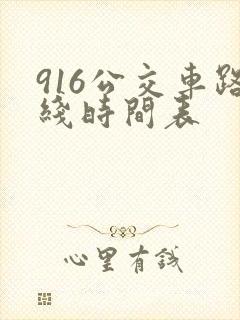 916公交車路
綫時間表
心里有錢